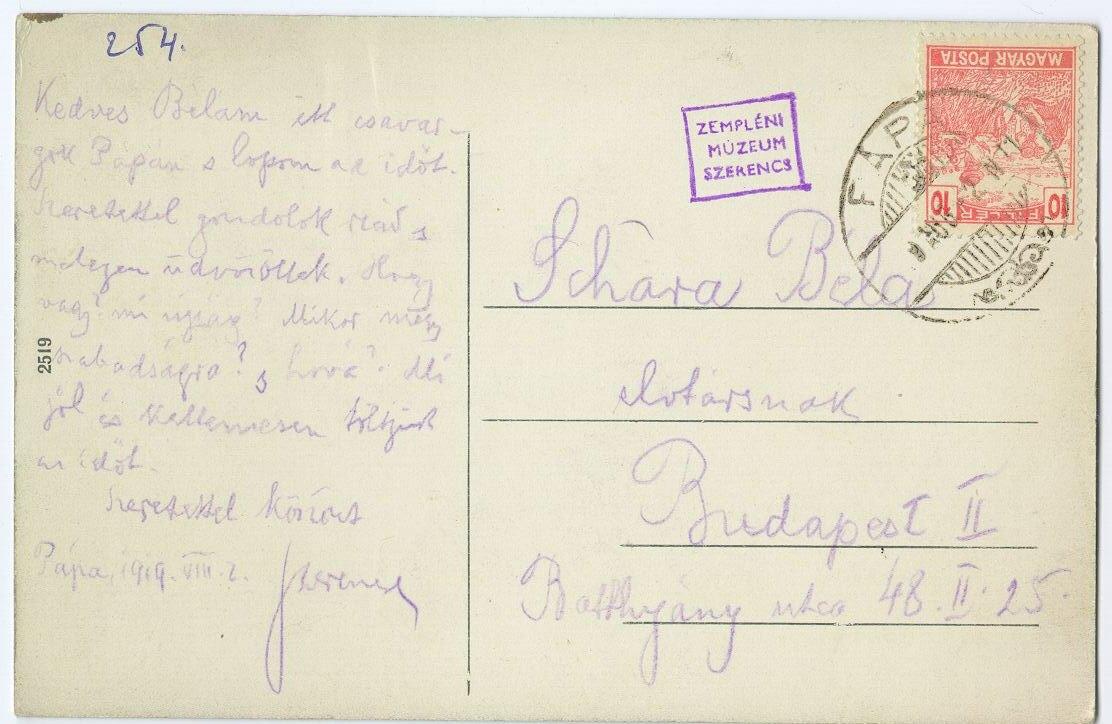 254.
Kedves Bélám itt csavar-
gok Pápán s lopom az időt.
Szeretettel gondolok reád s
melegen üdvözöllek. Hogy
vagy? mi újság? Mikor mégy
szabadságra? s hová? Mi
jól és kellemesen töltjük
az időt.
Szeretettel köszönt
Pápa, 1919. VIII. 2.
2519
ZEMPLÉNI
MÚZEUM
SZERENCS
MAGYAR POSTA
10 FILLÉR 10
PÁPA
Schára Béla
Budapest II
Batthyány utca 48. II. 25.